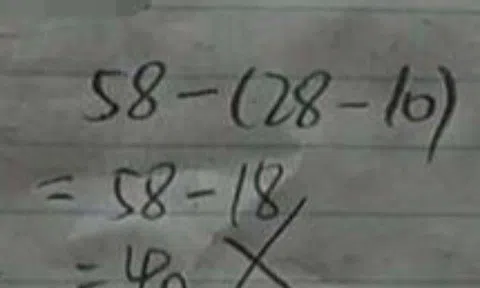 58-(28-10)
=58-18
=40 ×